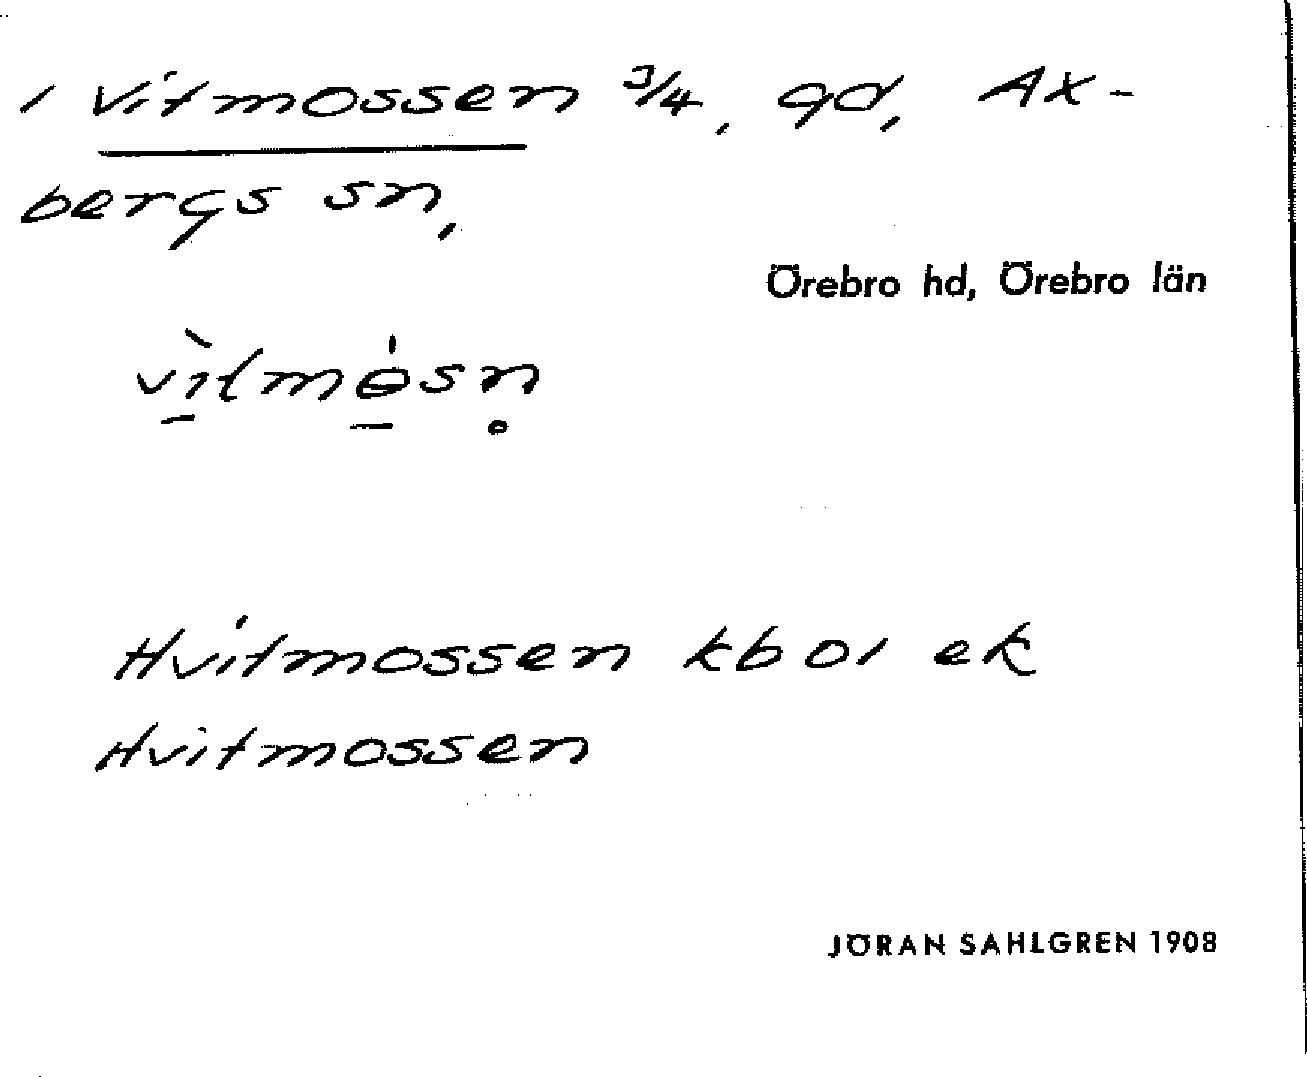 / Vitmossen 3/4, gd, Ax-
bergs sn,
Örebro hd, Örebro län
vì̱tmɵ̱́sn̥
Hvitmossen kboi ek
Hvitmossen
JÖRAN SAHLGREN 1908